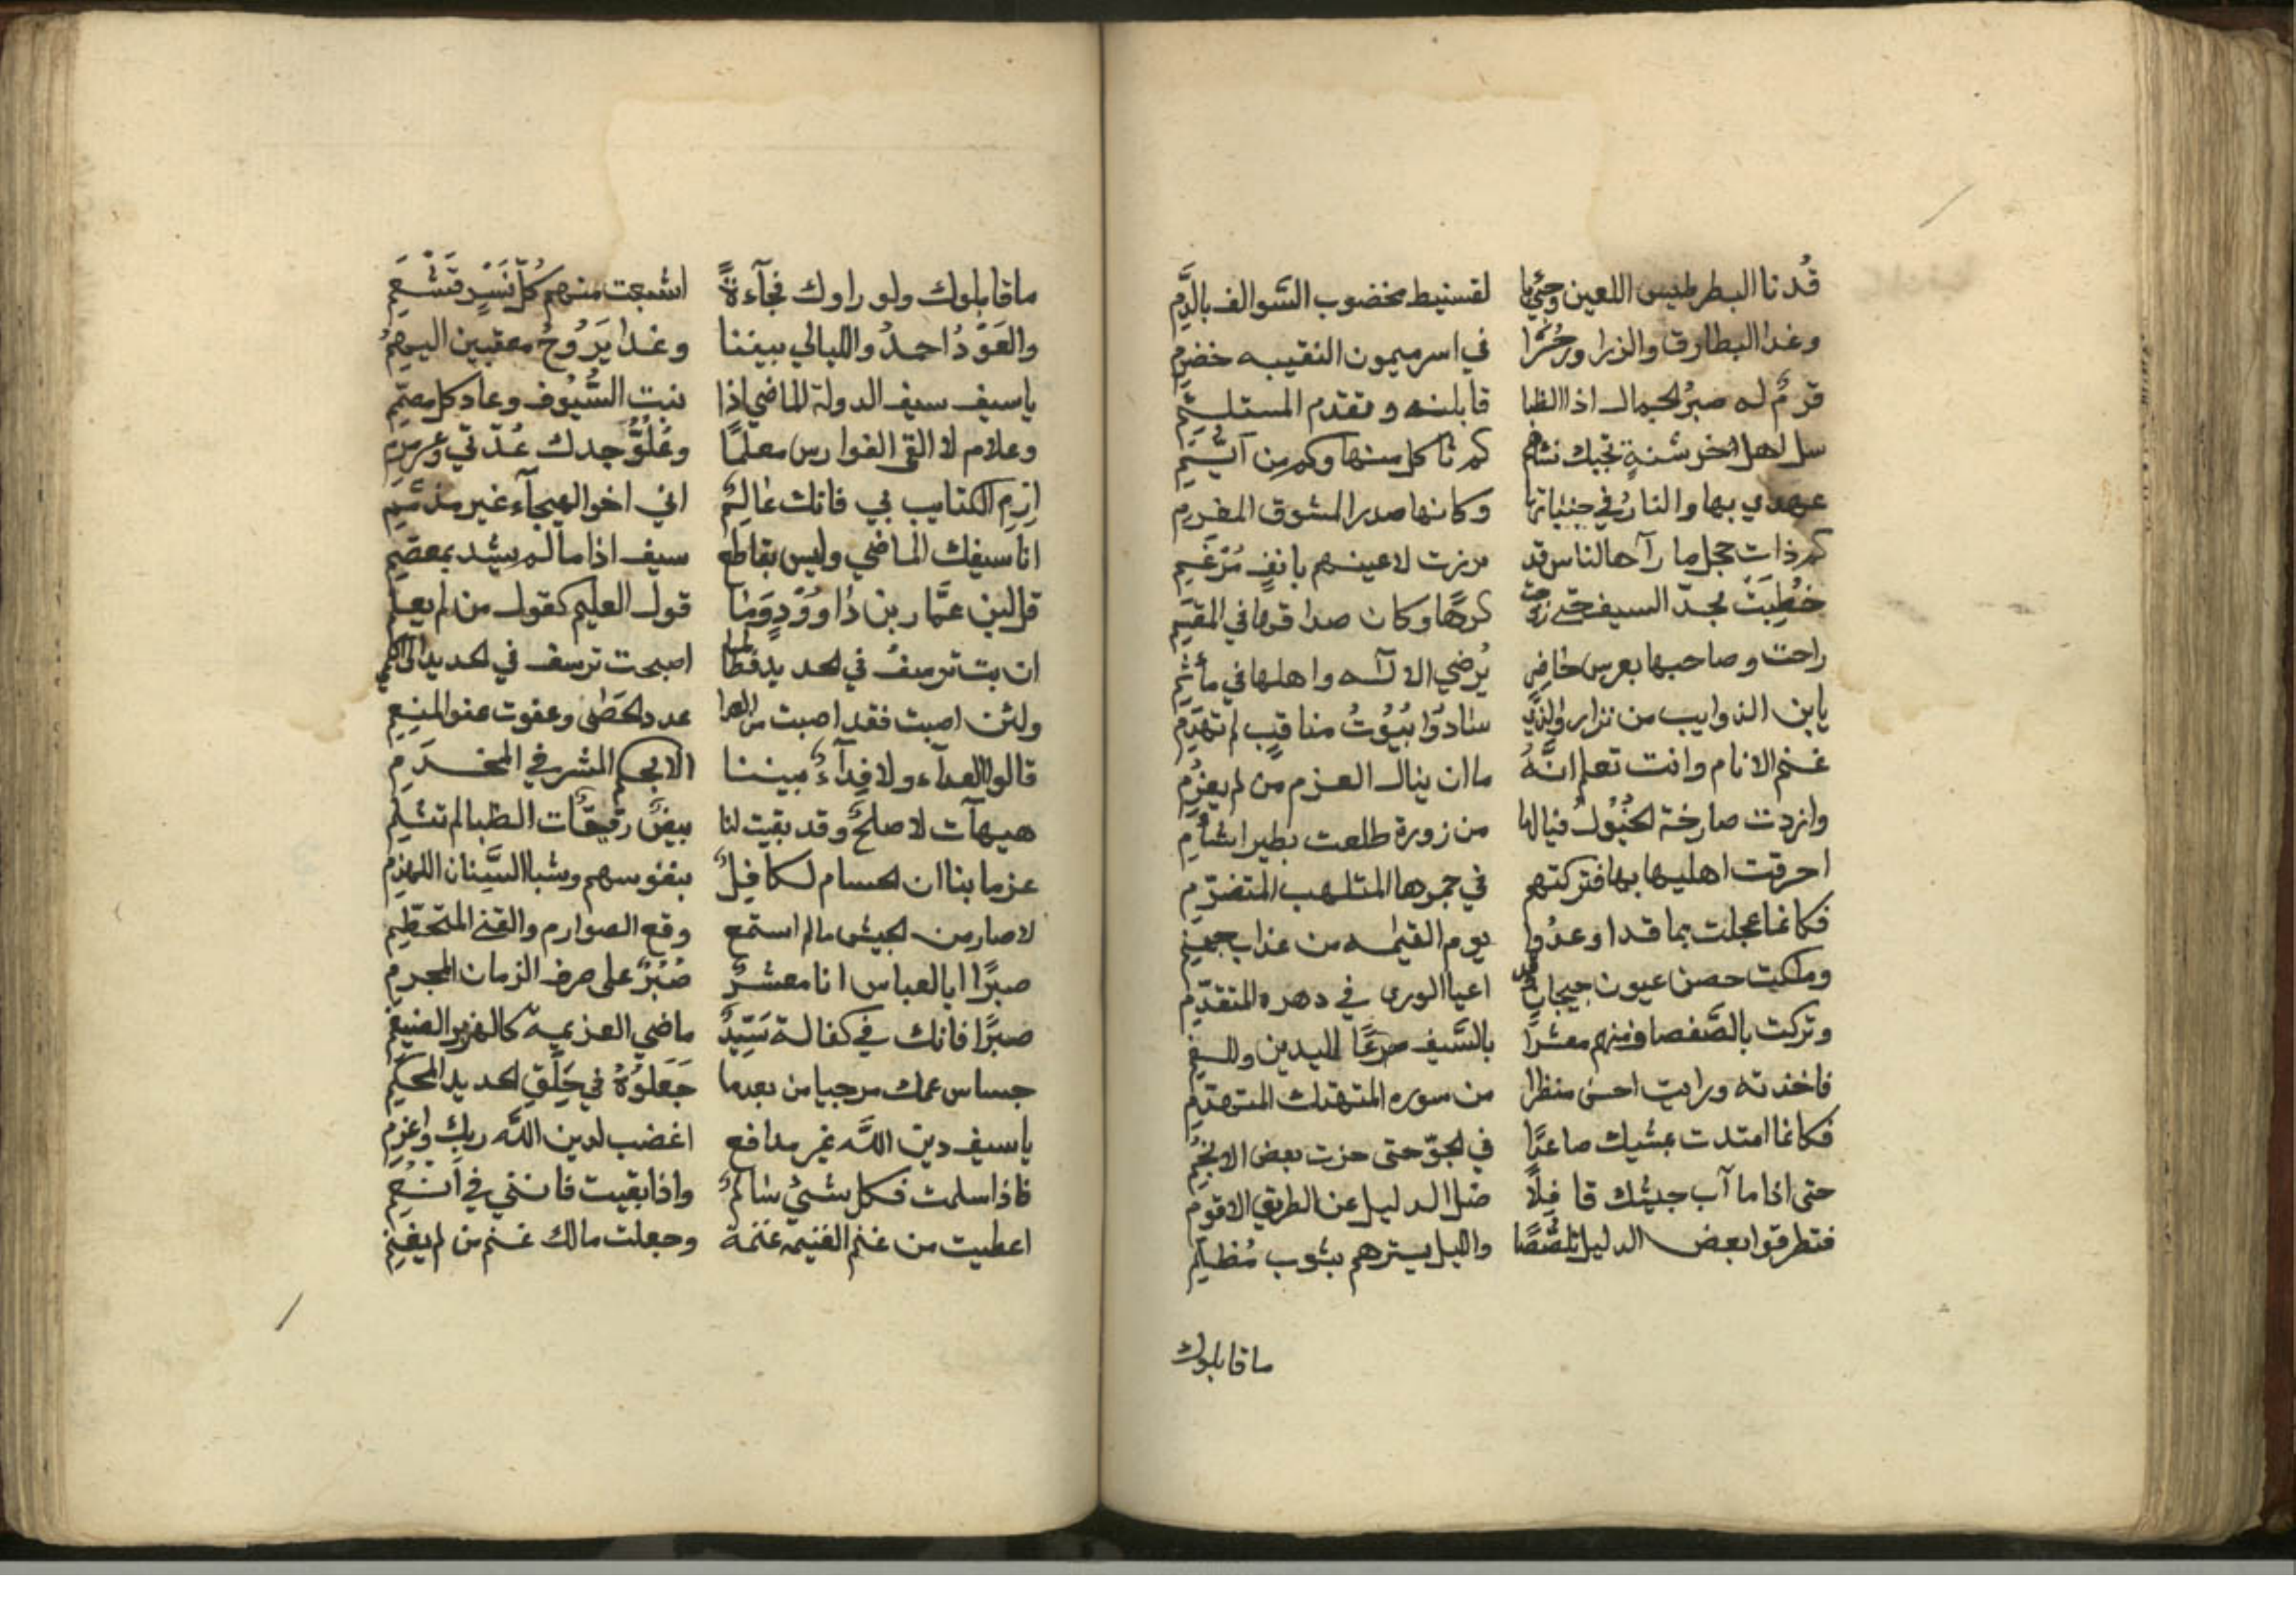 قُدنا البطرطيس اللعين وجئنا لقسنيط مخضوب السَّوالف بالدَّمِ
وغدا البطارق والزرا ورخرا في اسر ميمون النقيبه خضرم
قرمٌ له صبرُ الجمال اذا الظبا قابلنه وتقدم المستلئمِ
سل اهل خرشنةٍ تجبك نشام كم ثاكل منها وكم من ايّمِ
عهدي بها والنارُ في جنباتها وكانها صدر المشوق المغرمِ
كم ذات حجل ما رآها الناس قد برزت لاعينهم بانفٍ مُرْغَمِ
خُطِبَتْ بحدّ السيف حتى زوجت كرهًا وكان صداقها في المقسَمِ
راحت وصاحبها بعرس حاضر يُرضي الاآله واهلها في مأتمِ
يابن الذوايب من نزار والذي سادوا بُيُوتُ مناقبٍ لم تهدَمِ
غنم الانام وانت تعلم انَّهُ ما ان ينال العزم من لم يعزِمِ
وازدت صارخة الخُيُولُ فيالها من زورة طلعت بطير اشأمِ
احرقت اهليها بها فتركتهم في جمرها المتلهب المتضرّمِ
فكانما عجلت بما قد اوعدُوا يوم القيمه من عذاب جهنم
وملكت حصن عيون جيحان اعيا الورى في دهره المتقدّمِ
وتركت بالصَّفصاف منهم معشرًا بالسَّيف صرعًا لليدين وللفم
فاخذته ورايت احسن منظرا من سوره المتهتك المتهدّمِ
فكانما امتدت بمشيك صاعدًا في الجوّ حتى حزت بعض الانجُمِ
حتى اذا ما آب جيشك قافِلًا ضل الدليل عن الطريق الاقومِ
فتطرقوا بعض الدليل تلصُّصًا والليل يسترهم بثوب مُظلِمِ
ماقابلوك
ماقابلوك ولو راوك فجآءةً اشبعت منهم كُلَّ نَسْرٍ قَشْعَمِ
والعَوْدُ احمدُ والليالي بيننا وغدا يَرُوحُ معقبين اليهمُ
ياسيف سيف الدولة الماضي اذا نبت السُّيُوف وعاد كل مصمّمِ
وعلام لا القى الفوارس معلمًا وعُلُوُّ جدك عُدّتي وعرمرم
اِرمِ الكتايب بي فانك عالِمٌ اني اخو الهيجآء غير مذمّمِ
انا سيفك الماضي وليس بقاطع سيف اذا ما لم يشد بمعصمِ
قل لابن عمَّار بن داوُودٍ وَمَا قول العليم كقول من لم يعلم
ان بت ترسفُ في الحديد فطالما اصبحت ترسف في الحديد الى الكمي
ولئن اصبت فقد اصبت من العدا عدد الحَصَى وعفوت عفو المنعِمِ
قالوا الفدآء ولا فِدآءُ بيننا الا بحكم المشرفي المخذَمِ
هيهآت لا صلحٌ وقد بقيت لنا بيضٌ رقيقات الظبا لم تثلم
عزما بنا ان الحسام لكافِلٌ بنفوسهم وشبا السِّنان اللهذم
لا صار من الجيش مالم استمع وقع الصوارم والقنى المتحطِّمِ
صبرًا ابا العباس انا معشرٌ صُبُرٌ على صرف الزمان المجرم
صبرًا فانك في كفالة سَيِّدٌ ماضي العزيمةِ كالهزبر الضيغم
جساس عمك مرحبا من بعدما جَعَلُوهُ في حَلَقِ الحديد المحكم
ياسيف دين اللَّه غير مدافع اغضب لدين اللَّه ربك واعزم
فاذا سلمت فكل شيئ سالمٌ واذا بقيت فانني في اَنعُمِ
اعطيت من غنم الغنيمه غنمة وجعلت مالك غنم من لم يغنمِ